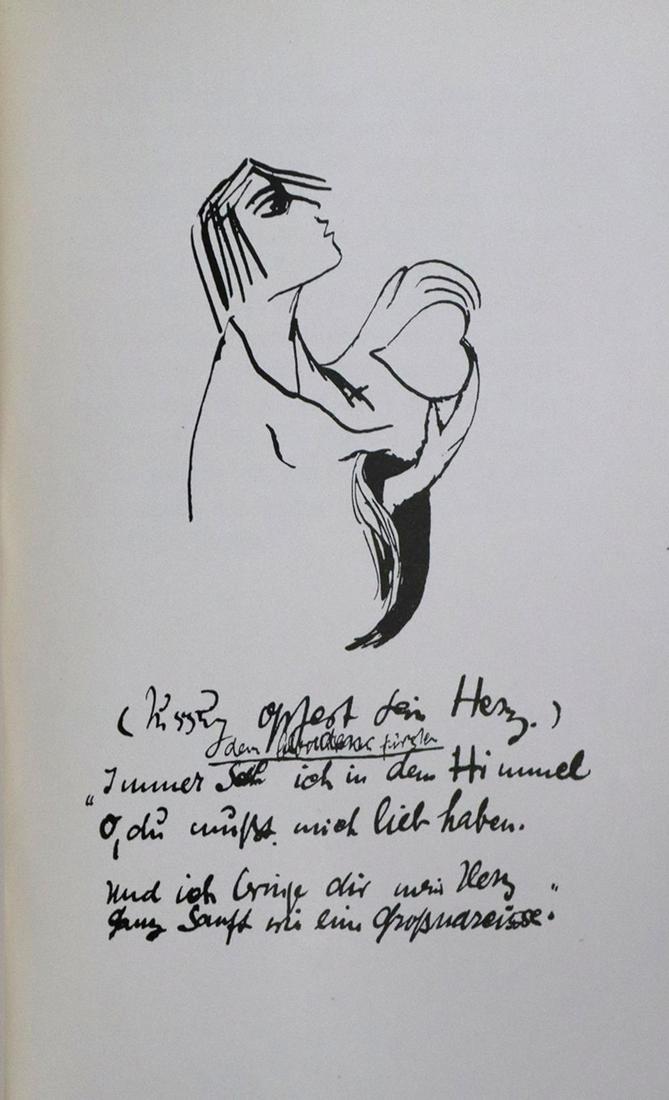 (Jussuf opfert sein Herz.)
dem
"Immer Seh ich in den Himmel
O, du mußt mich lieb haben.
Und ich bringe dir mein Herz"
Ganz Sanft wie eine Großnarcisse.